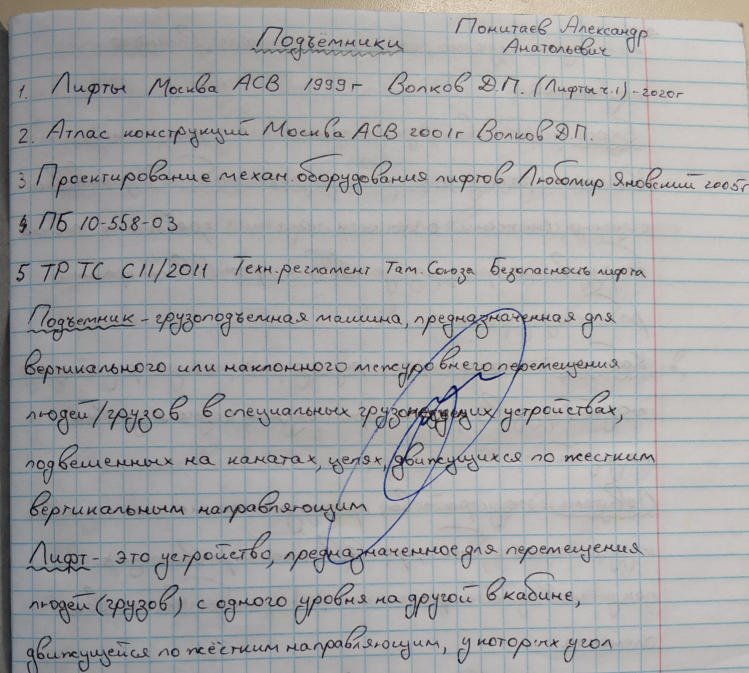 Подъёмники
Понитаев Александр
Анатольевич
1. Лифты Москва АСВ 1999г Волков Д.П. (Лифты ч.1) - 2020г
2. Атлас конструкций Москва АСВ 2001г Волков Д.П.
3 Проектирование механ. оборудования лифтов Любомир Яновский 2005г
4. ПБ 10-558-03
5 ТР ТС С11/2011 Техн. регламент Там. Союза Безопасность лифта
Подъемник - грузоподъемная машина, предназначенная для
вертикального или наклонного межуровнего перемещения
людей/грузов в специальных грузонесущих устройствах,
подвешенных на канатах, цепях, движущихся по жестким
вертикальным направляющим
Лифт - это устройство, предназначенное для перемещения
людей (грузов) с одного уровня на другой в кабине,
движущейся по жёстким направляющим, у которых угол